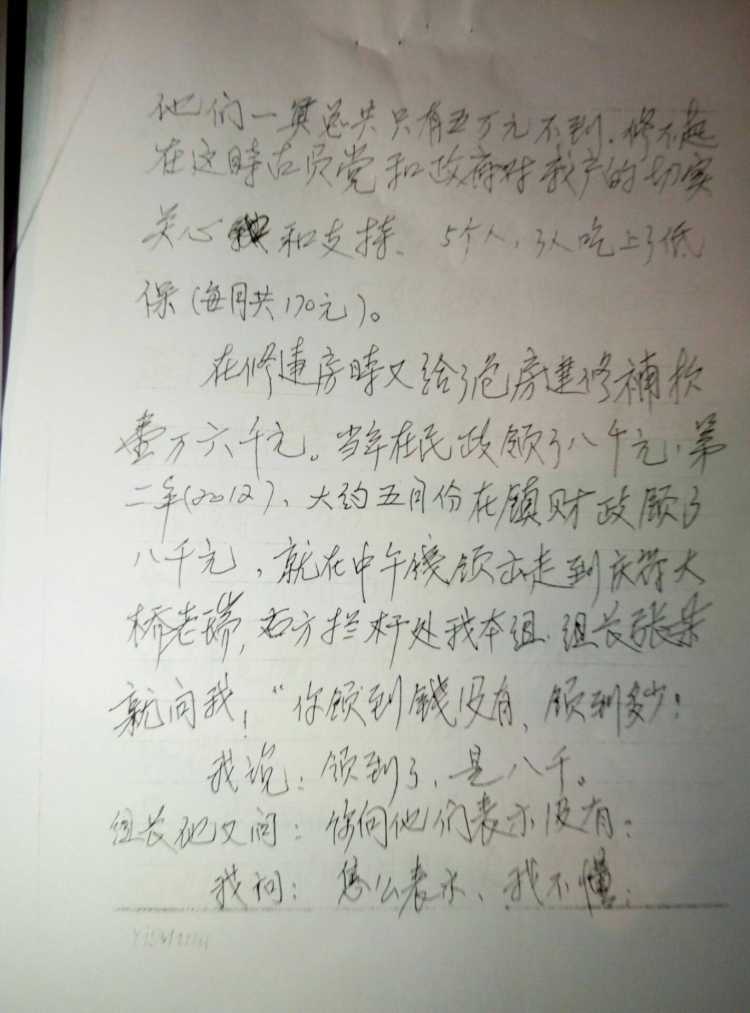 他们一算总共只有五万元不到.修不起
在这时占员党和政府对教产的切实
关心和支持、5个人,3人吃上了低
保(每月共170元)。
在修建房时又给了危房建修補款
壹万六千元。当年在民政领了八千元.第
二年(2012)、大约五月份在鎮财政领了
八千元,就在中午錢领出走到庆符大
桥老端,右方拦杆处我本组.组长張某
就问我:“你领到錢没有、领到多少:
我说:领到了、是八千。
组长他又问:你向他们表示没有:
我问:怎么表示、我不懂: